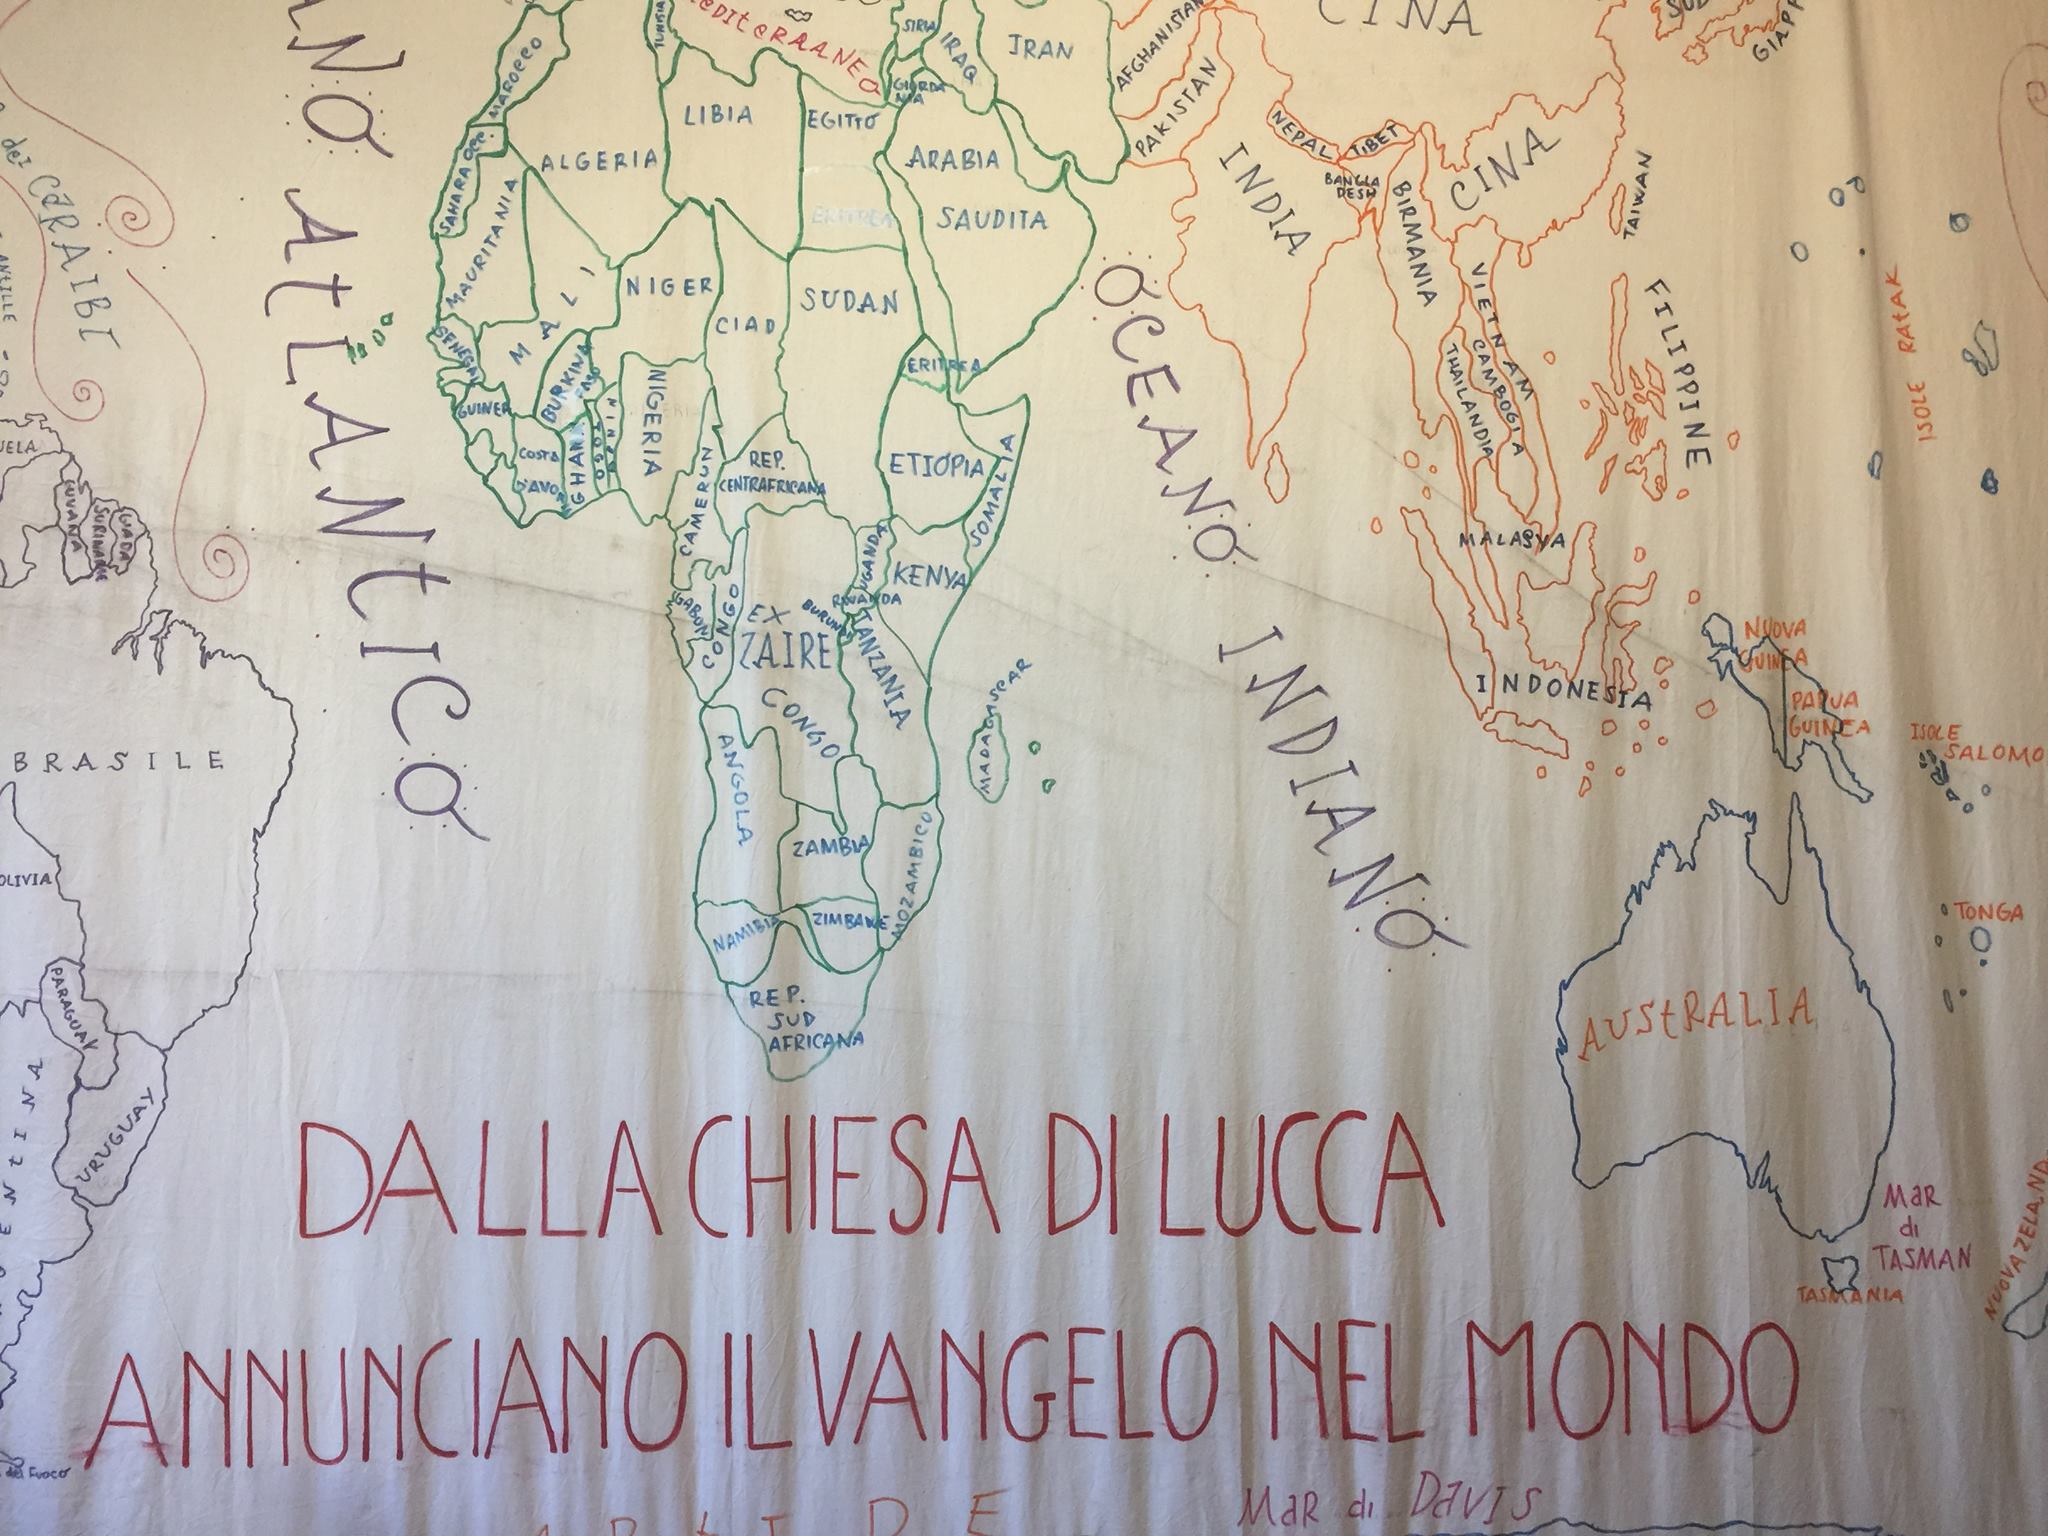 MEDITERRANEO
CINA
TUNISIA
SIRIA
IRAQ
IRAN
AFGHANISTAN
MAROCCO
GIORDA
NIA
PAKISTAN
LIBIA
EGITTO
ALGERIA
ARABIA
SAUDITA
ERITREA
SAHARA OCC.
MAURITANIA
NEPAL
TIBET
BANGLA
DESH
INDIA
CINA
BIRMANIA
TAIWAN
dei CARAIBI
ANTILLE
MALI
NIGER
CIAD
SUDAN
ERITREA
SENEGAL
BURKINA
FASO
GUINEA
COSTA
D'AVORIO
GHANA
TOGO
BENIN
NIGERIA
CAMERUN
REP.
CENTRAFRICANA
ETIOPIA
SOMALIA
VIETNAM
CAMBOGIA
THAILANDIA
FILIPPINE
ISOLE RATAK
GUYANA
SURINAME
MALASYA
UGANDA
KENYA
RWANDA
BURUNDI
GABON
CONGO
EX
ZAIRE
CONGO
TANZANIA
MADAGASCAR
INDONESIA
NUOVA
GUINEA
PAPUA
GUINEA
ISOLE
SALOMO
BRASILE
ANO ATLANTICO
OCEANO INDIANO
ANGOLA
ZAMBIA
MOZAMBICO
OLIVIA
NAMIBIA
ZIMBABWE
TONGA
PARAGUAY
REP.
SUD
AFRICANA
AUStRALIA
URUGUAY
ENtINA
DALLA CHIESA DI LUCCA
MaR
di
TASMAN
TASMANIA
NUOVA ZELAND
ANNUNCIANO IL VANGELO NEL MONDO
del Fuoco
MaR di DavIS